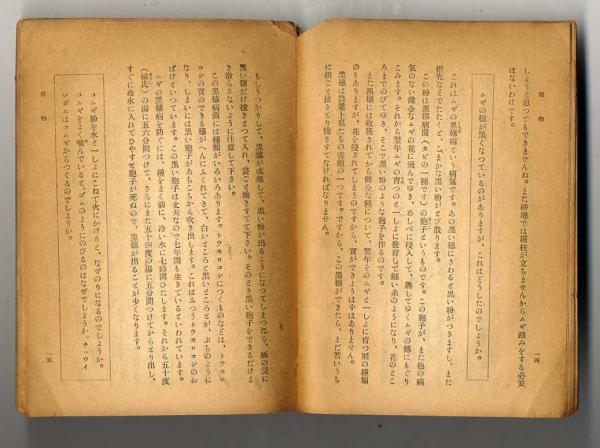 植物
一四
しようと思つてもできませんね。また砂地では霜柱が立ちませんからムギ踏みをする必要
はないわけです。
ムギの穂が黒くなつているのがありますが、これはどうしたのでしようか。
これはムギの黒穂病という病気です。あの黒い穂にさわると黒い粉がつきますし、また
指先などでたたくと、こまかな黒い粉がとび散ります。
この粉は黒穂病菌（カビの一種です）の胞子というものです。この胞子が、また他の病
気のない健全なムギの花に飛んでゆき、めしべに侵入して、熟してゆくムギの穂にもぐり
こみます。それから翌年ムギの育つのと一しよに発育して細い糸のようになり、花のとこ
ろまでのびてゆき、そこで黒い粉のような胞子を作るのです。
また黒穂には収穫されてから健全な種について、翌年そのムギと一しよに育つ別の種類
のもありますが、花を侵されてしまうのですから、実ができようはずはありません。
黒穂は農業上私たちの害敵の一つです。ですから、この黒穂ができたら、まだ若いうち
に根ごと抜きとり焼きすてなければなりません。
植物
一五
もしうつかりして、黒穂が成熟して、黒い粉が出るようになつてしまつたら、紙の袋に
黒い穂だけ抜きとつて入れ、袋ごと焼きすてて下さい。そのとき黒い胞子をできるだけま
き散らさないように注意して下さい。
この黒穂病菌には種類がいろいろあります。トウモロコシにつくものなどは、トウモロ
コシの実のできる穂がへんにふくれてきて、白いところと黒いところとが、ぶちのように
なり、しまいには黒い胞子があちこちから吹き出します。これはふつうトウモロコシのお
ばけといつています。この黒い胞子は丈夫なので七年間も生きているといわれています。
ムギの黒穂病を防ぐには、種をまく前に、冷い水に七時間ひたします。それから五十度
（摂氏）の湯に五六分間つけて、さらにまた五十四度の湯に五分間つけてからとり出し、
すぐに冷水に入れてひやすと胞子が死ぬので、黒穂が出ることが少くなります。
コムギ粉を水と一しよにこねて火にかけると、なぜのりになるのでしようか。
コムギをよく噛んでいると、ゴムのようにのびるのはなぜでしようか。チュウイ
ンガムはコムギからつくるのでしようか。